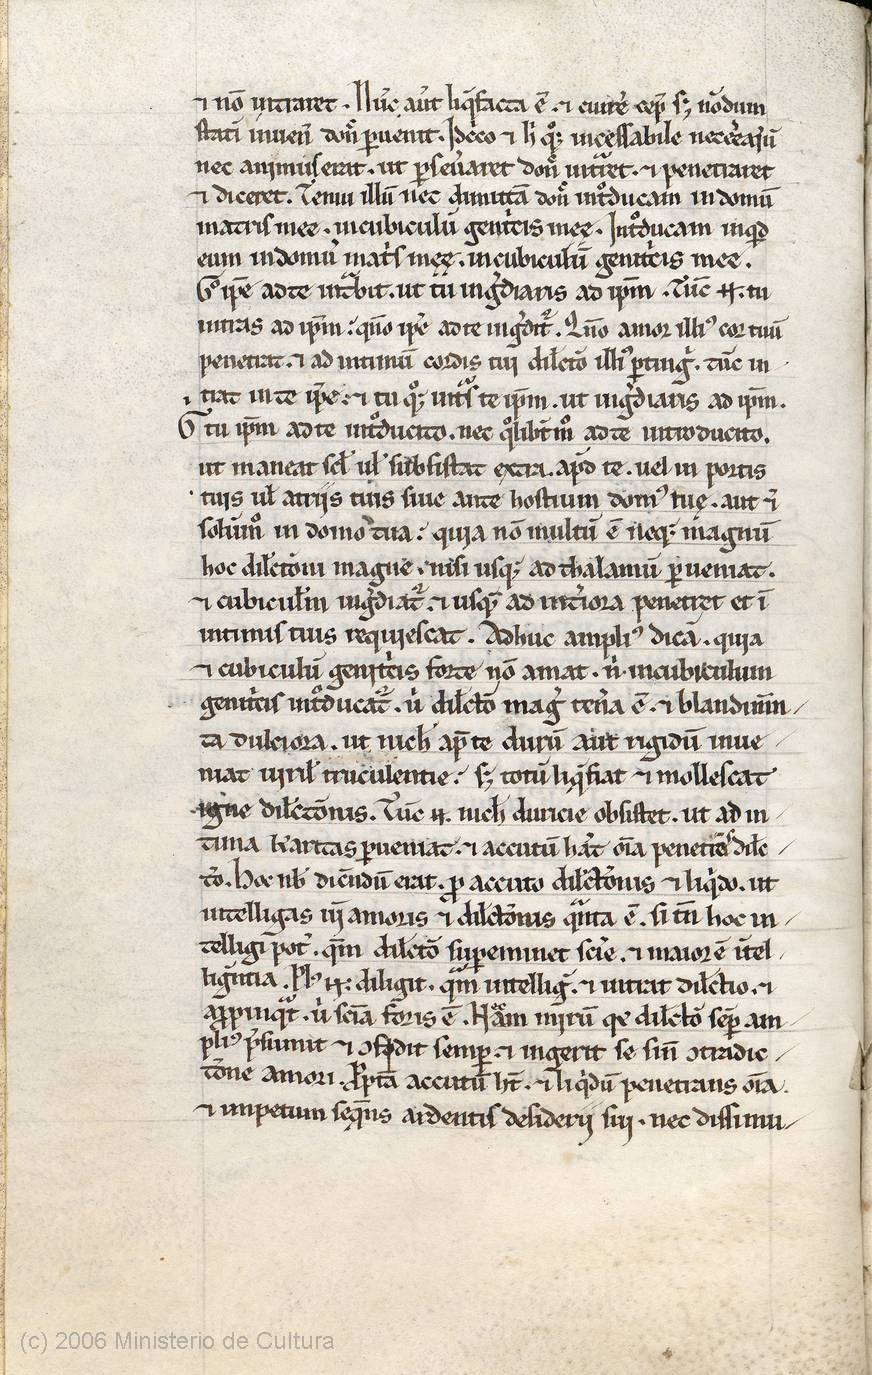 ⁊ nō intraret. Nūc aūt liq̄facta ē. ⁊ currē cep̄ sꝫ nōdum
statī inuenī donē puenit.
nec animus erat. ut pseuaret donē intret. ⁊ penetraret
⁊ diceret. Tenui illū nec dimittā donē intoducam in domū
matris mee. in cubiculū genitcis meę. Intoducam inqd
eum in domū matis meę. in cubiculū genitcis mee.
ipē ad te intbit. ut tu ingdiaris ad ipm. Tūc tu
intras ad ipm: qno ipē ad te ingdit. Qno amor illiꝰ cor tuū
penetrat. ⁊ ad intimū cordis tui dilctō illiꝰ ptingit. tūc in
trat in te ipē. ⁊ tu qꝫ intras te ipm. ut ingdiaris ad ipm.
tu ipm ad te intoducito. nec qlibet mo ad te introducito.
ut maneat scl ul subsistat extra. apd te. uel in portis
tuis ul atriis tuis siue ante hostium domꝰ tuę. aut
solummo in domo tua: quia nō multū ē neqꝫ magnū
hoc dilctōni magne. nisi usqꝫ ad thalamū pueniat.
⁊ cubiculm ingdiat. ⁊ usqꝫ ad intiora penetret et ī
intimis tuis requiescat. Adhuc ampliꝰ dicā. quia
⁊ cubiculū genitcis forte nō amat. in cubiculum
genitcis intoducat. ū dilctō mag tena ē. ⁊ blandimn
ta dulciora. ut nich ap te durū aut rigidū inue
niat uiril truculentie: sꝫ totū liqfiat ⁊ mollescat
igne dilctōnis. Tūc nich duricie obsistet. ut ad in
tima karitas pueniat. ⁊ accutū hat oīa penetret dilc
tō. Hoc nb dicēndū erat. p accuto dilctōnis ⁊ liqdo. ut
intelligas uī amoris ⁊ dilctōnis qnta ē. si tn hoc in
telligi pot. qm dilctō supeminet scie. ⁊ maior ē intel
ligntia. Plꝰ diligit. qm intelligit. ⁊ intrat dilctio. ⁊
appinqt. ū sciā foris ē. mirū qe dilctō semp am
pliꝰ psumit ⁊ ↄfidit semp ⁊ ingerit se sin ↄtradic
tōne amori. Pptā accutū ht. ⁊ liqdū penetrans oīa.
⁊ impetum seqns ardentis desiderii sui. nec dissimu
(c) 2006 Ministerio de Cultura